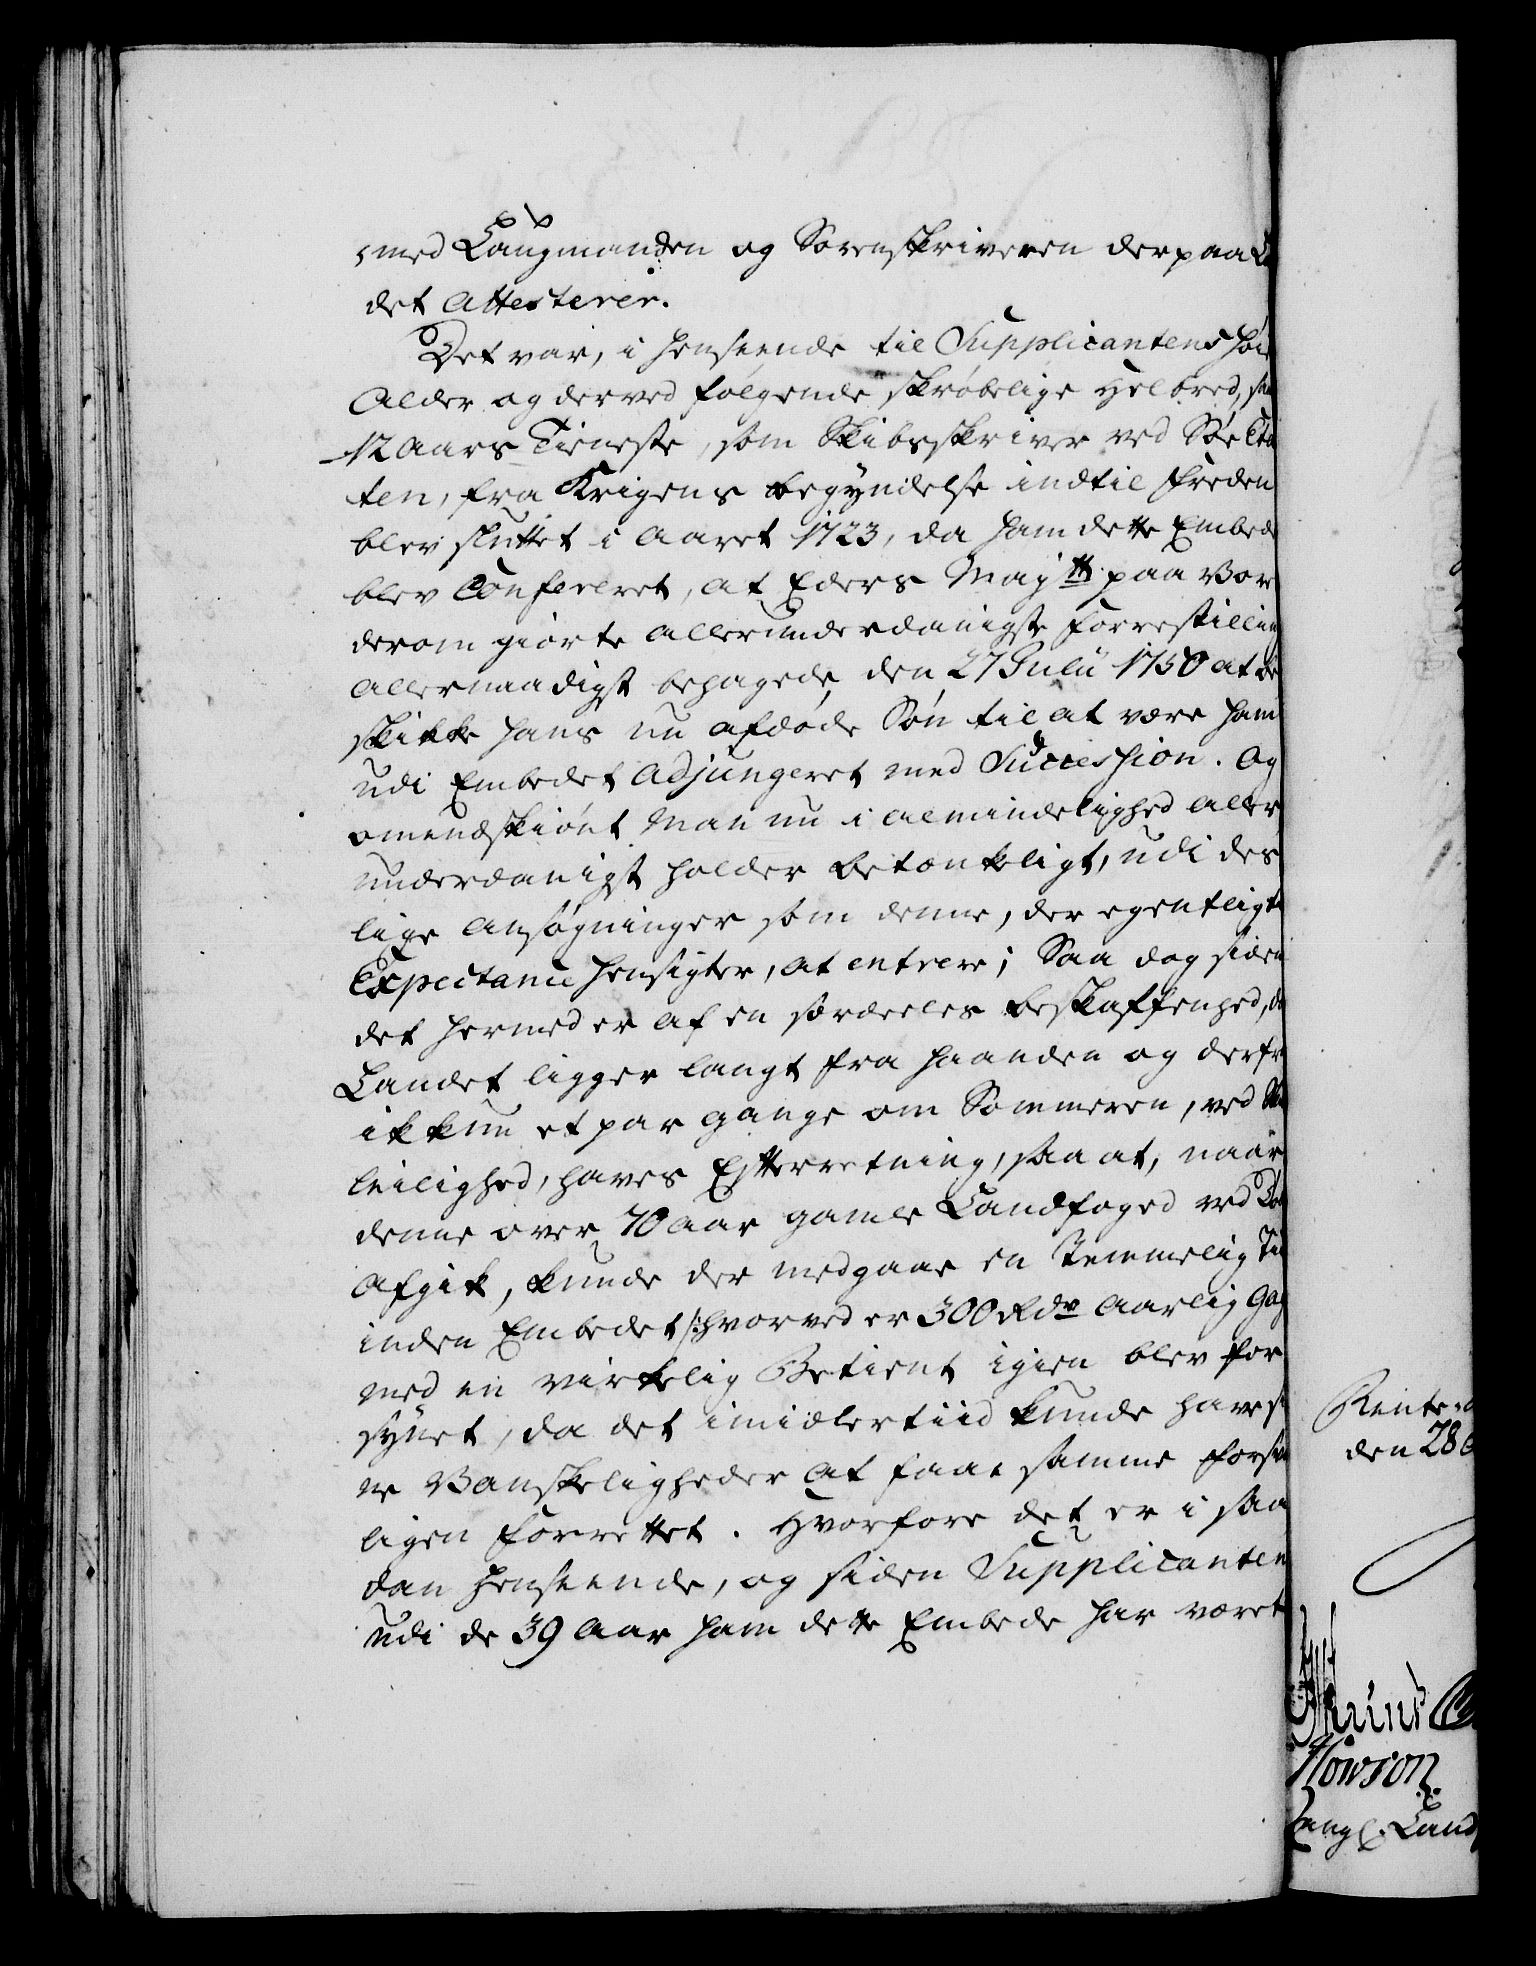 med Laugmanden og Sorenskriveren derpaa La
det attesterer.
Det var, i henseende til Supplicantens høie
Alder og derved følgende skrøbelige Helbred, sa
12 Aars Tieneste, som Skibsskriver ved Søe Eta
ten, fra Krigens begyndelse indtil Freden
blev sluttet i Aaret 1723, da ham dette Embede
blev Confereret, at Eders Majtt. paa Vor
derom giorte allerunderdanigste Forrestilling
allernaadigst behagede, den 27 Julii 1750 at be
skikke hans nu afdøde Søn til at være ham
udi Embedet adjungeret med Succession. Og
omendskiønt Man nu i almindelighed aller
underdanigst holder betænkeligt, udi des
lige ansøgninger som denne, der egentligt
Expectance hensigter, at entrere; Saa dog siden
det hermed er af en særdeeles beskaffenhed, da
Landet ligger langt fra haanden og derfra
ikkun et par gange om Sommeren, ved Ski
leilighed, haves Efterretning, saa at, naar
denne over 70 Aar gamle Landfoged ved Dø
afgik, kunde der medgaae en temmelig Tid
inden Embedet /: hvorved er 300 Rdr Aarlig Gag
med en virkelig Betient igien blev for
synet, da det imidlertiid kunde have si
ne Vanskeligheder at faae samme forsva
ligen forrettet. Hvorfore det er i saa
dan henseende, og siden Supplicanten
udi de 39 Aar ham dette Embede har været
Rente-
den 28
Howson.
Land